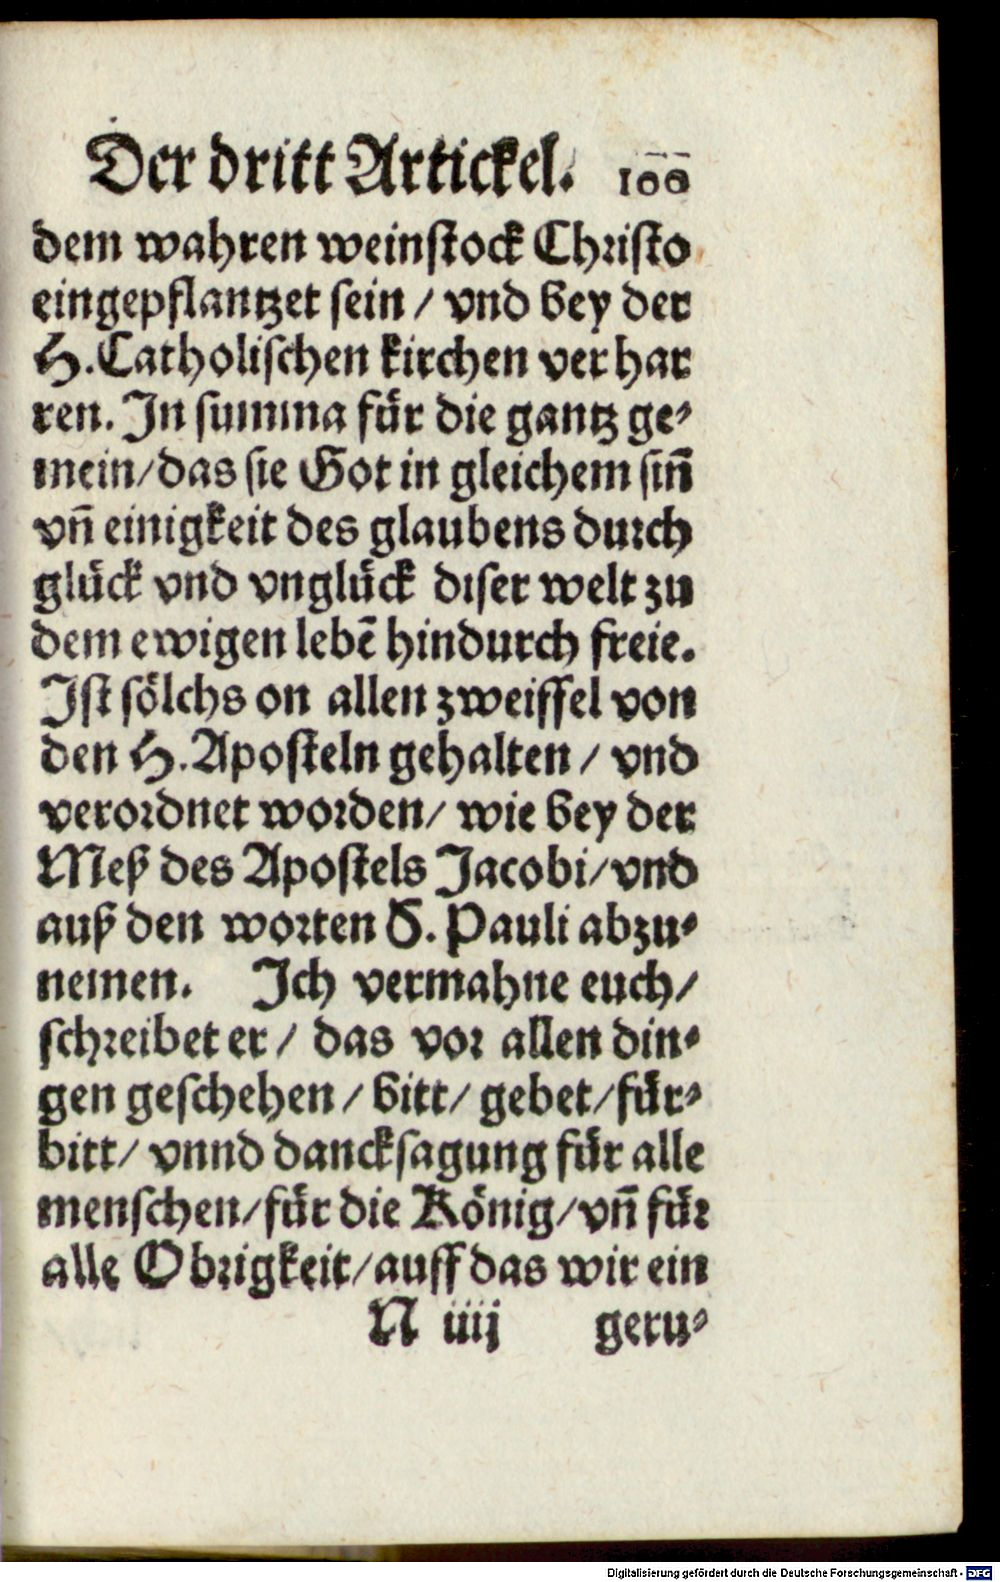 Der dritt Artickel. 100
dem wahren weinstock Christo
eingepflantzet sein / vnd bey der
H. Catholischen kirchen verhar
ren. In summa für die gantz ge⸗
mein/das sie Got in gleichem sin̄
vn̄ einigkeit des glaubens durch
glück vnd vnglück diser welt zu
dem ewigen lebē hindurch freie.
Ist sölchs on allen zweiffel von
den H. Aposteln gehalten / vnd
verordnet worden/ wie bey der
Meß des Apostels Jacobi/vnd
auß den worten S. Pauli abzu⸗
nemen. Ich vermahne euch/
schreibet er / das vor allen din⸗
gen geschehen / bitt/ gebet/für⸗
bitt/ vnnd dancksagung für alle
menschen/für die König/vn̄ für
alle Obrigkeit/auff das wir ein
N iiij geru⸗
Digitalisierung gefördert durch die Deutsche Forschungsgemeinschaft - DFG